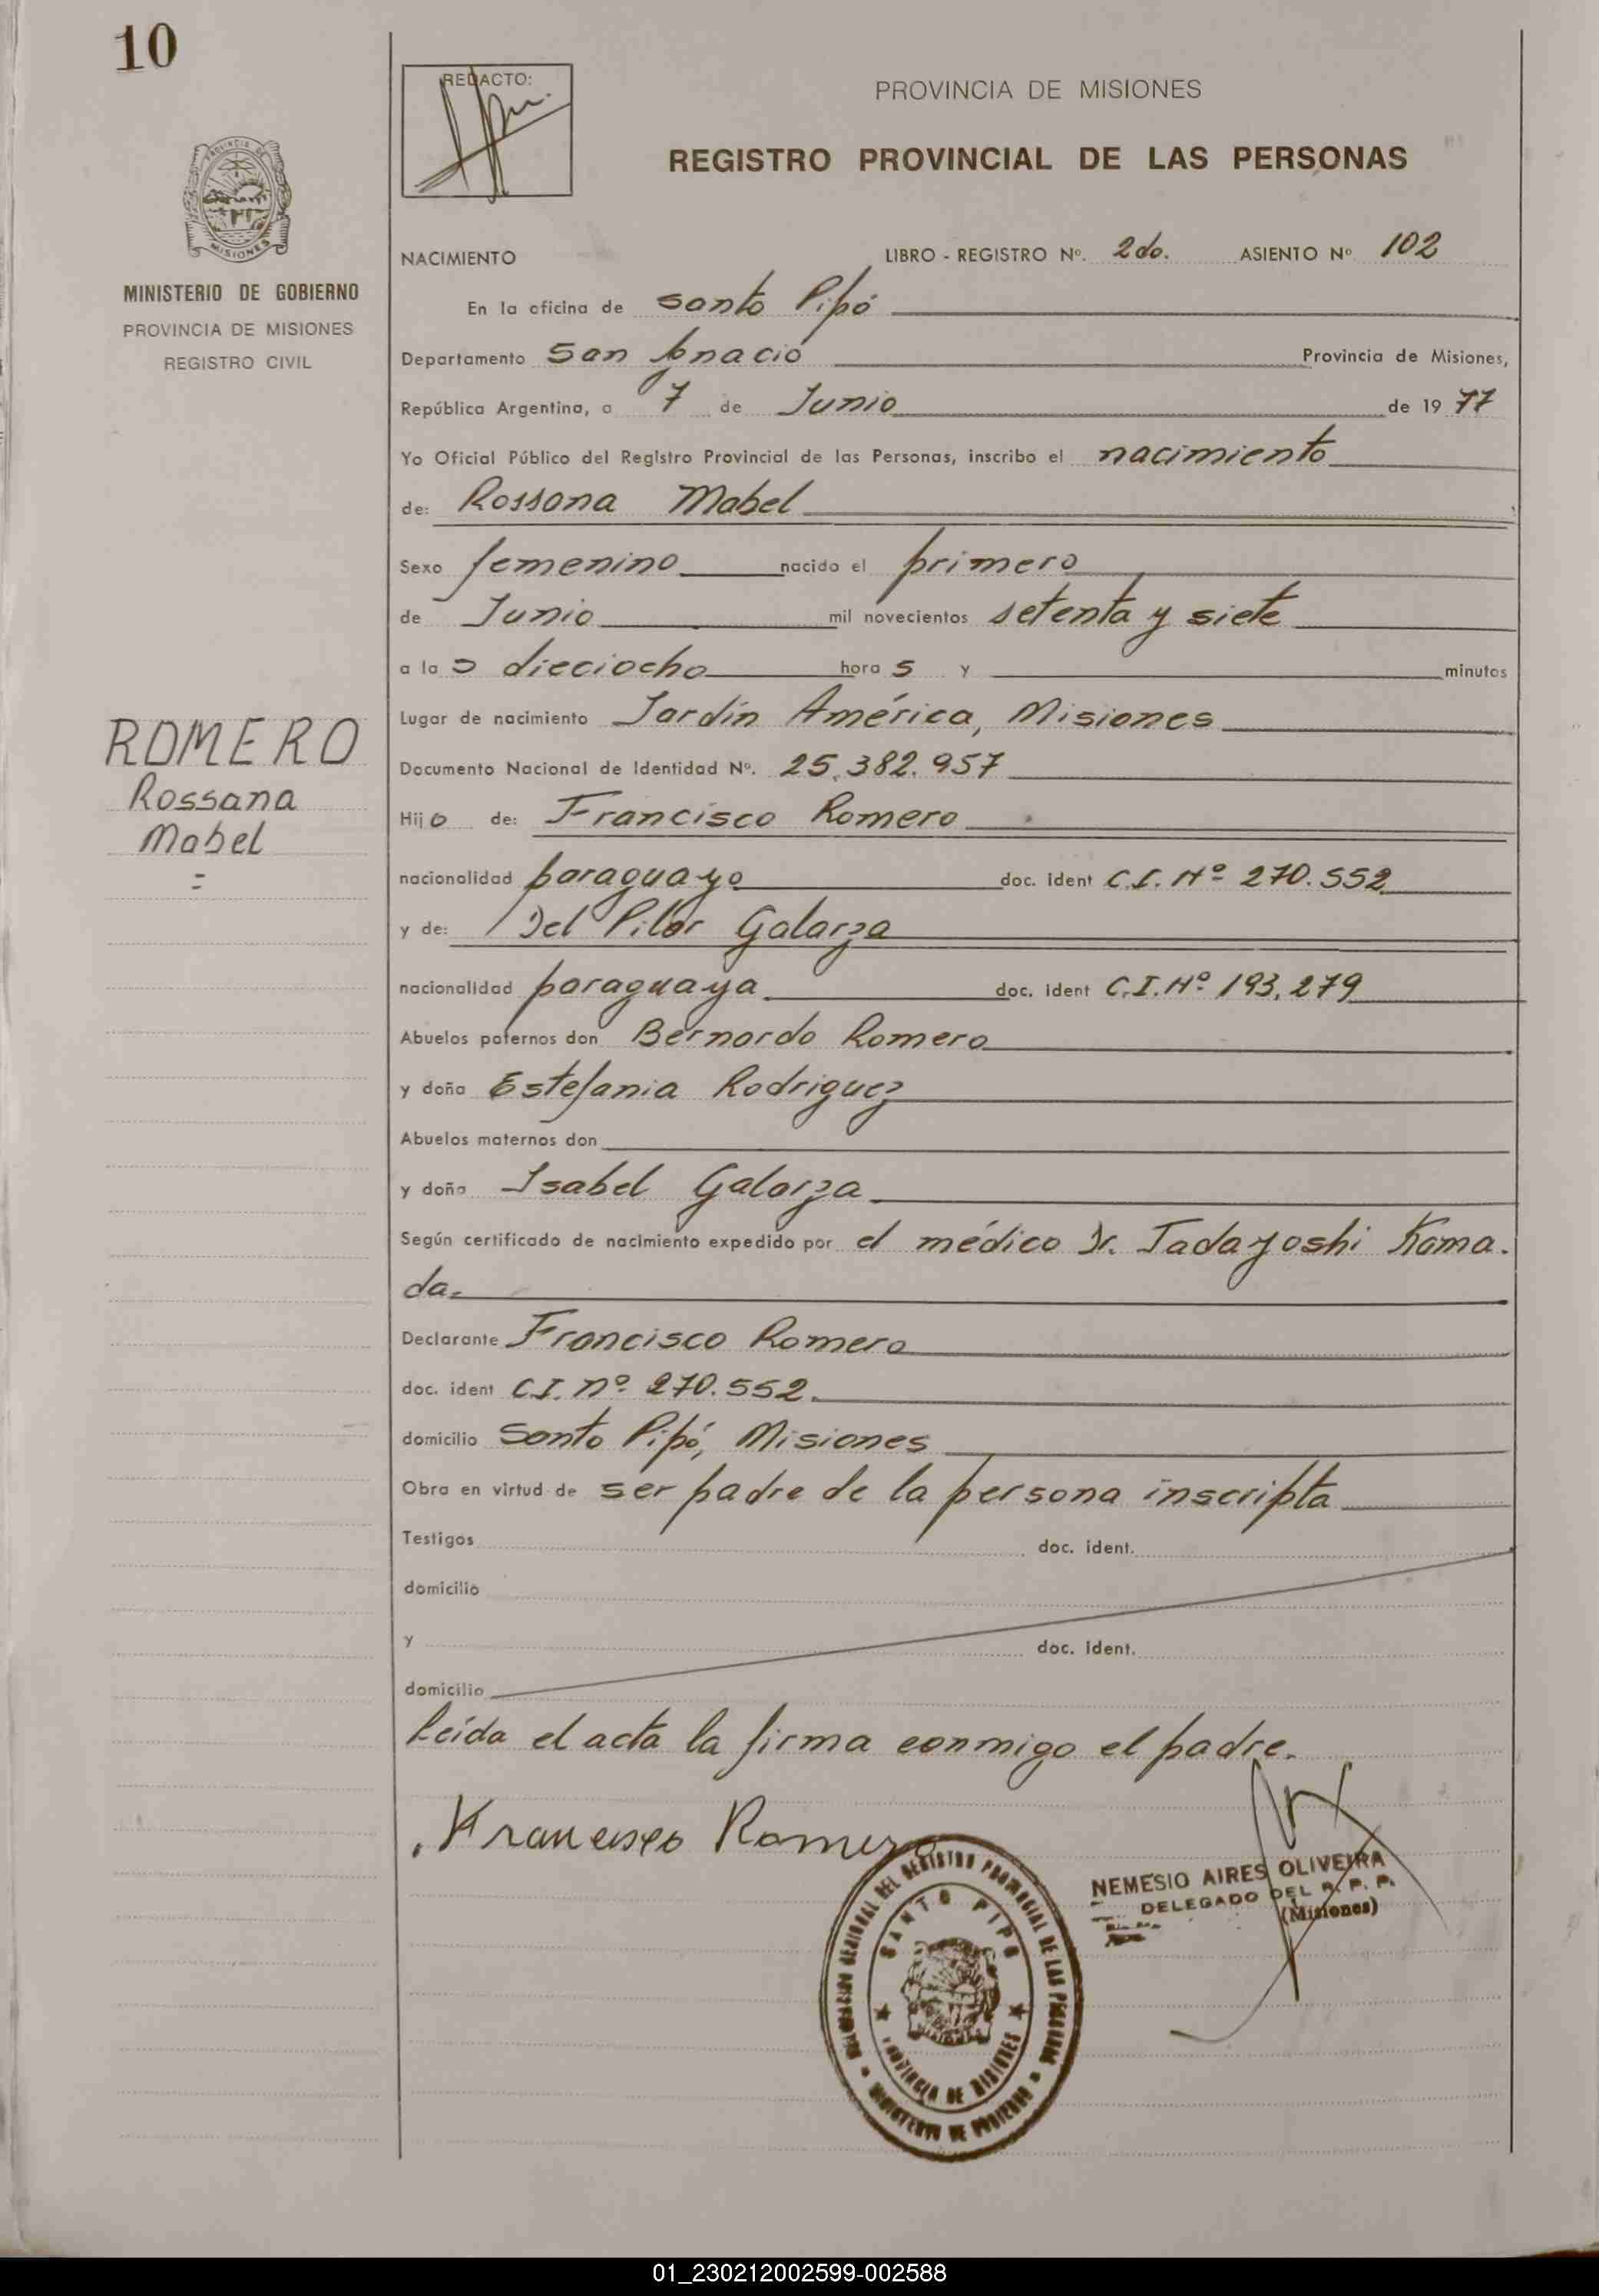 10
REDACTO:
PROVINCIA DE MISIONES
REGISTRO PROVINCIAL DE LAS PERSONAS
PROVINCIA DE
MISIONES
MINISTERIO DE GOBIERNO
PROVINCIA DE MISIONES
REGISTRO CIVIL
NACIMIENTO LIBRO - REGISTRO Nº. 2do. ASIENTO Nº 102
En la oficina de Santo Pipó
Departamento San Ignacio Provincia de Misiones,
República Argentina, a 7 de Junio de 1977
Yo Oficial Público del Registro Provincial de las Personas, inscribo el nacimiento
de: Rossana Mabel
Sexo femenino nacido el primero
de Junio mil novecientos setenta y siete
a las dieciocho horas y minutos
Lugar de nacimiento Jardín América, Misiones
Documento Nacional de Identidad Nº. 25.382.957
ROMERO
Rossana
Mabel
=
Hijo de: Francisco Romero
nacionalidad paraguayo doc. ident C.I. Nº 270.552
y de: Del Pilar Galarza
nacionalidad paraguaya doc. ident C.I. Nº 193.279
Abuelos paternos don Bernardo Romero
y doña Estefania Rodriguez
Abuelos maternos don
y doña Isabel Galarza
Según certificado de nacimiento expedido por el médico Dr. Tadayoshi Kama-
da.
Declarante Francisco Romero
doc. ident C.I. nº 270.552.
domicilio Santo Pipó, Misiones
Obra en virtud de ser padre de la persona inscripta
Testigos doc. ident.
domicilio
y doc. ident.
domicilio
Leída el acta la firma conmigo el padre.
Francisco Romero
NEMESIO AIRES OLIVEIRA
DELEGADO DEL R. P. P.
(Misiones)
DELEGACION REGIONAL DEL REGISTRO PROVINCIAL DE LAS PERSONAS
SANTO PIPO
PROVINCIA DE MISIONES
MINISTERIO DE GOBIERNO
01_230212002599-002588